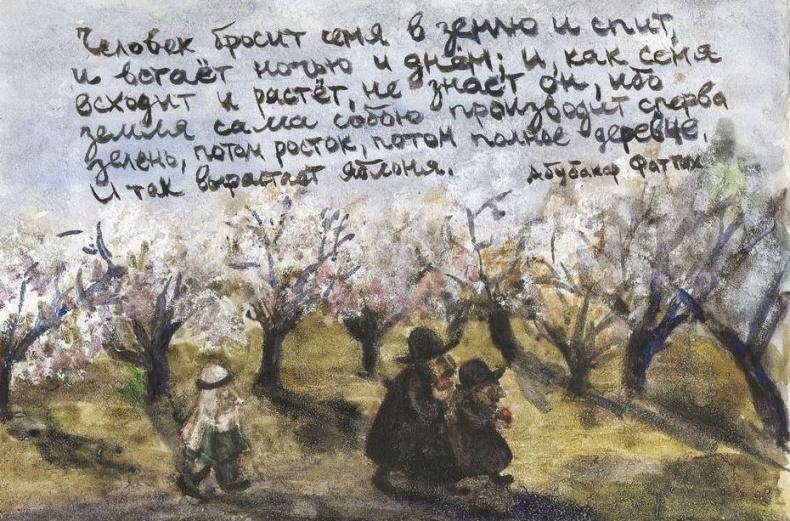 Человек бросит семя в землю и спит,
и встаёт ночью и днем; и, как семя
всходит и растёт, не знает он, ибо
земля сама собою производит сперва
зелень, потом росток, потом полное деревце.
И так вырастает яблоня. Абубакар Фаттах